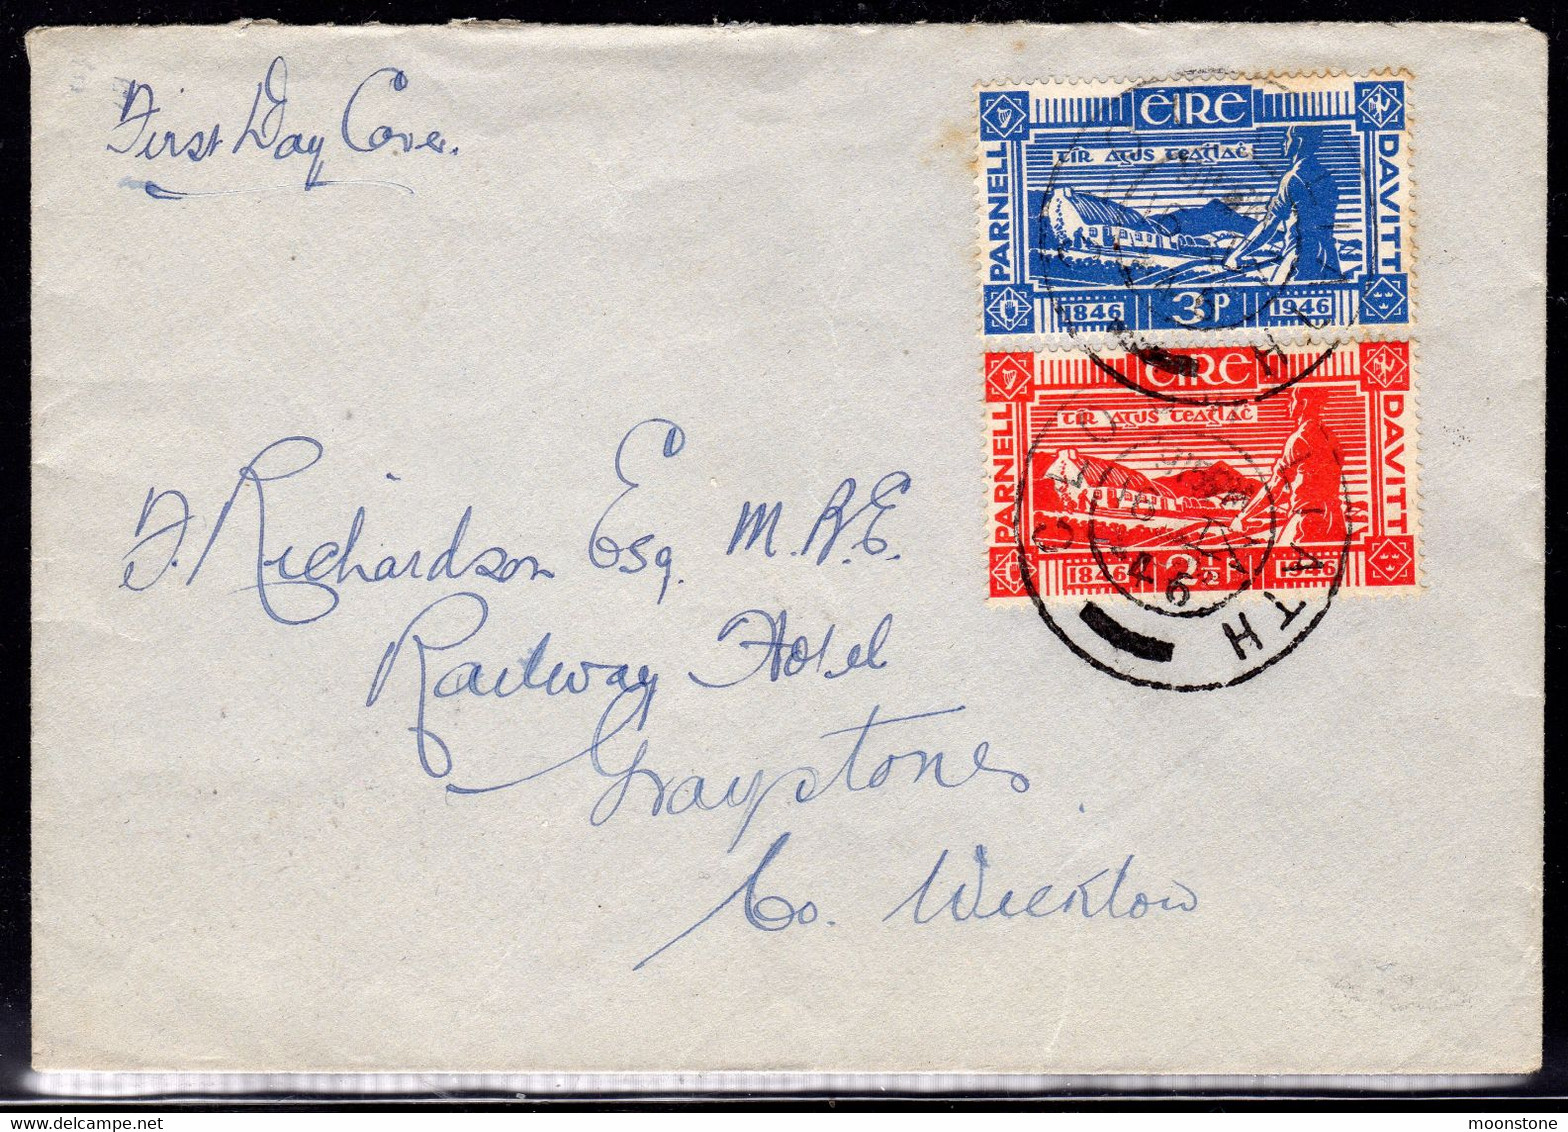 First Day Cover.
ÉIRE
tír agus teaghlach
PARNELL
DAVITT
1846 3P 1946
ÉIRE
tír agus teaghlach
PARNELL
DAVITT
1846 1946
ATH
46
Richardson Esq. M.B.E.
Railway Hotel
Graystones
Co. Wicklow
moonstone